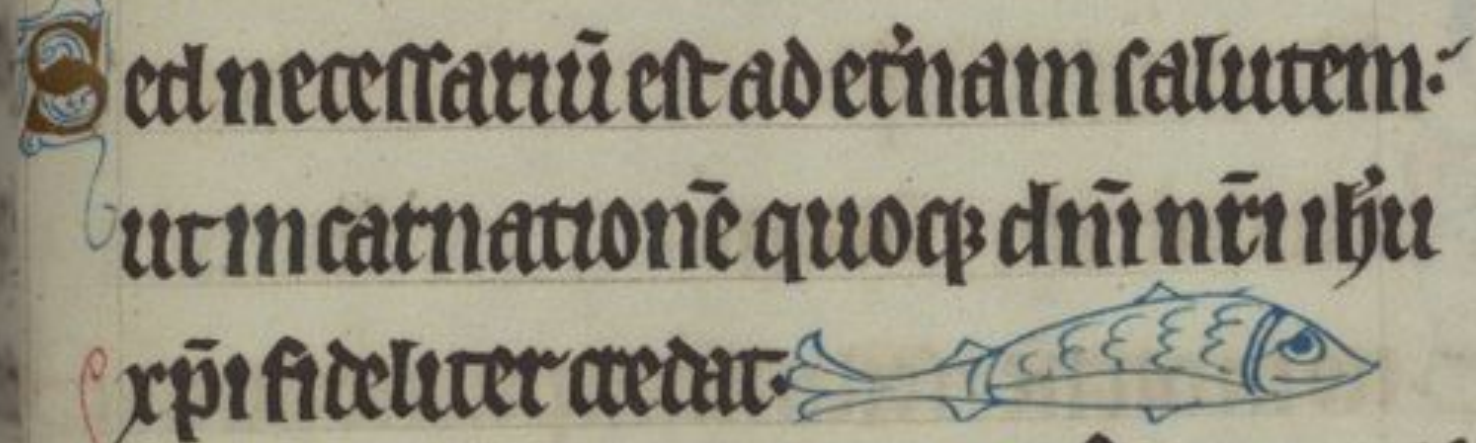 Sed necessariū est ad et'nam salutem.
ut incarnationē quoqꝫ dñi nr̄i ihu
xp̄i fideliter credat.